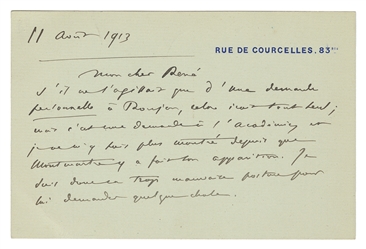 11 Août 1913
RUE DE COURCELLES. 83
Mon cher René
s'il ne s'agissait que d'une demande
personnelle à Roujon, cela irait tout seul ;
mais c'est une demande à l'Académie et
je ne m'y suis plus montré depuis que
Montmartre y a fait son apparition. Je
suis donc en trop mauvaise posture pour
lui demander quelque chose.